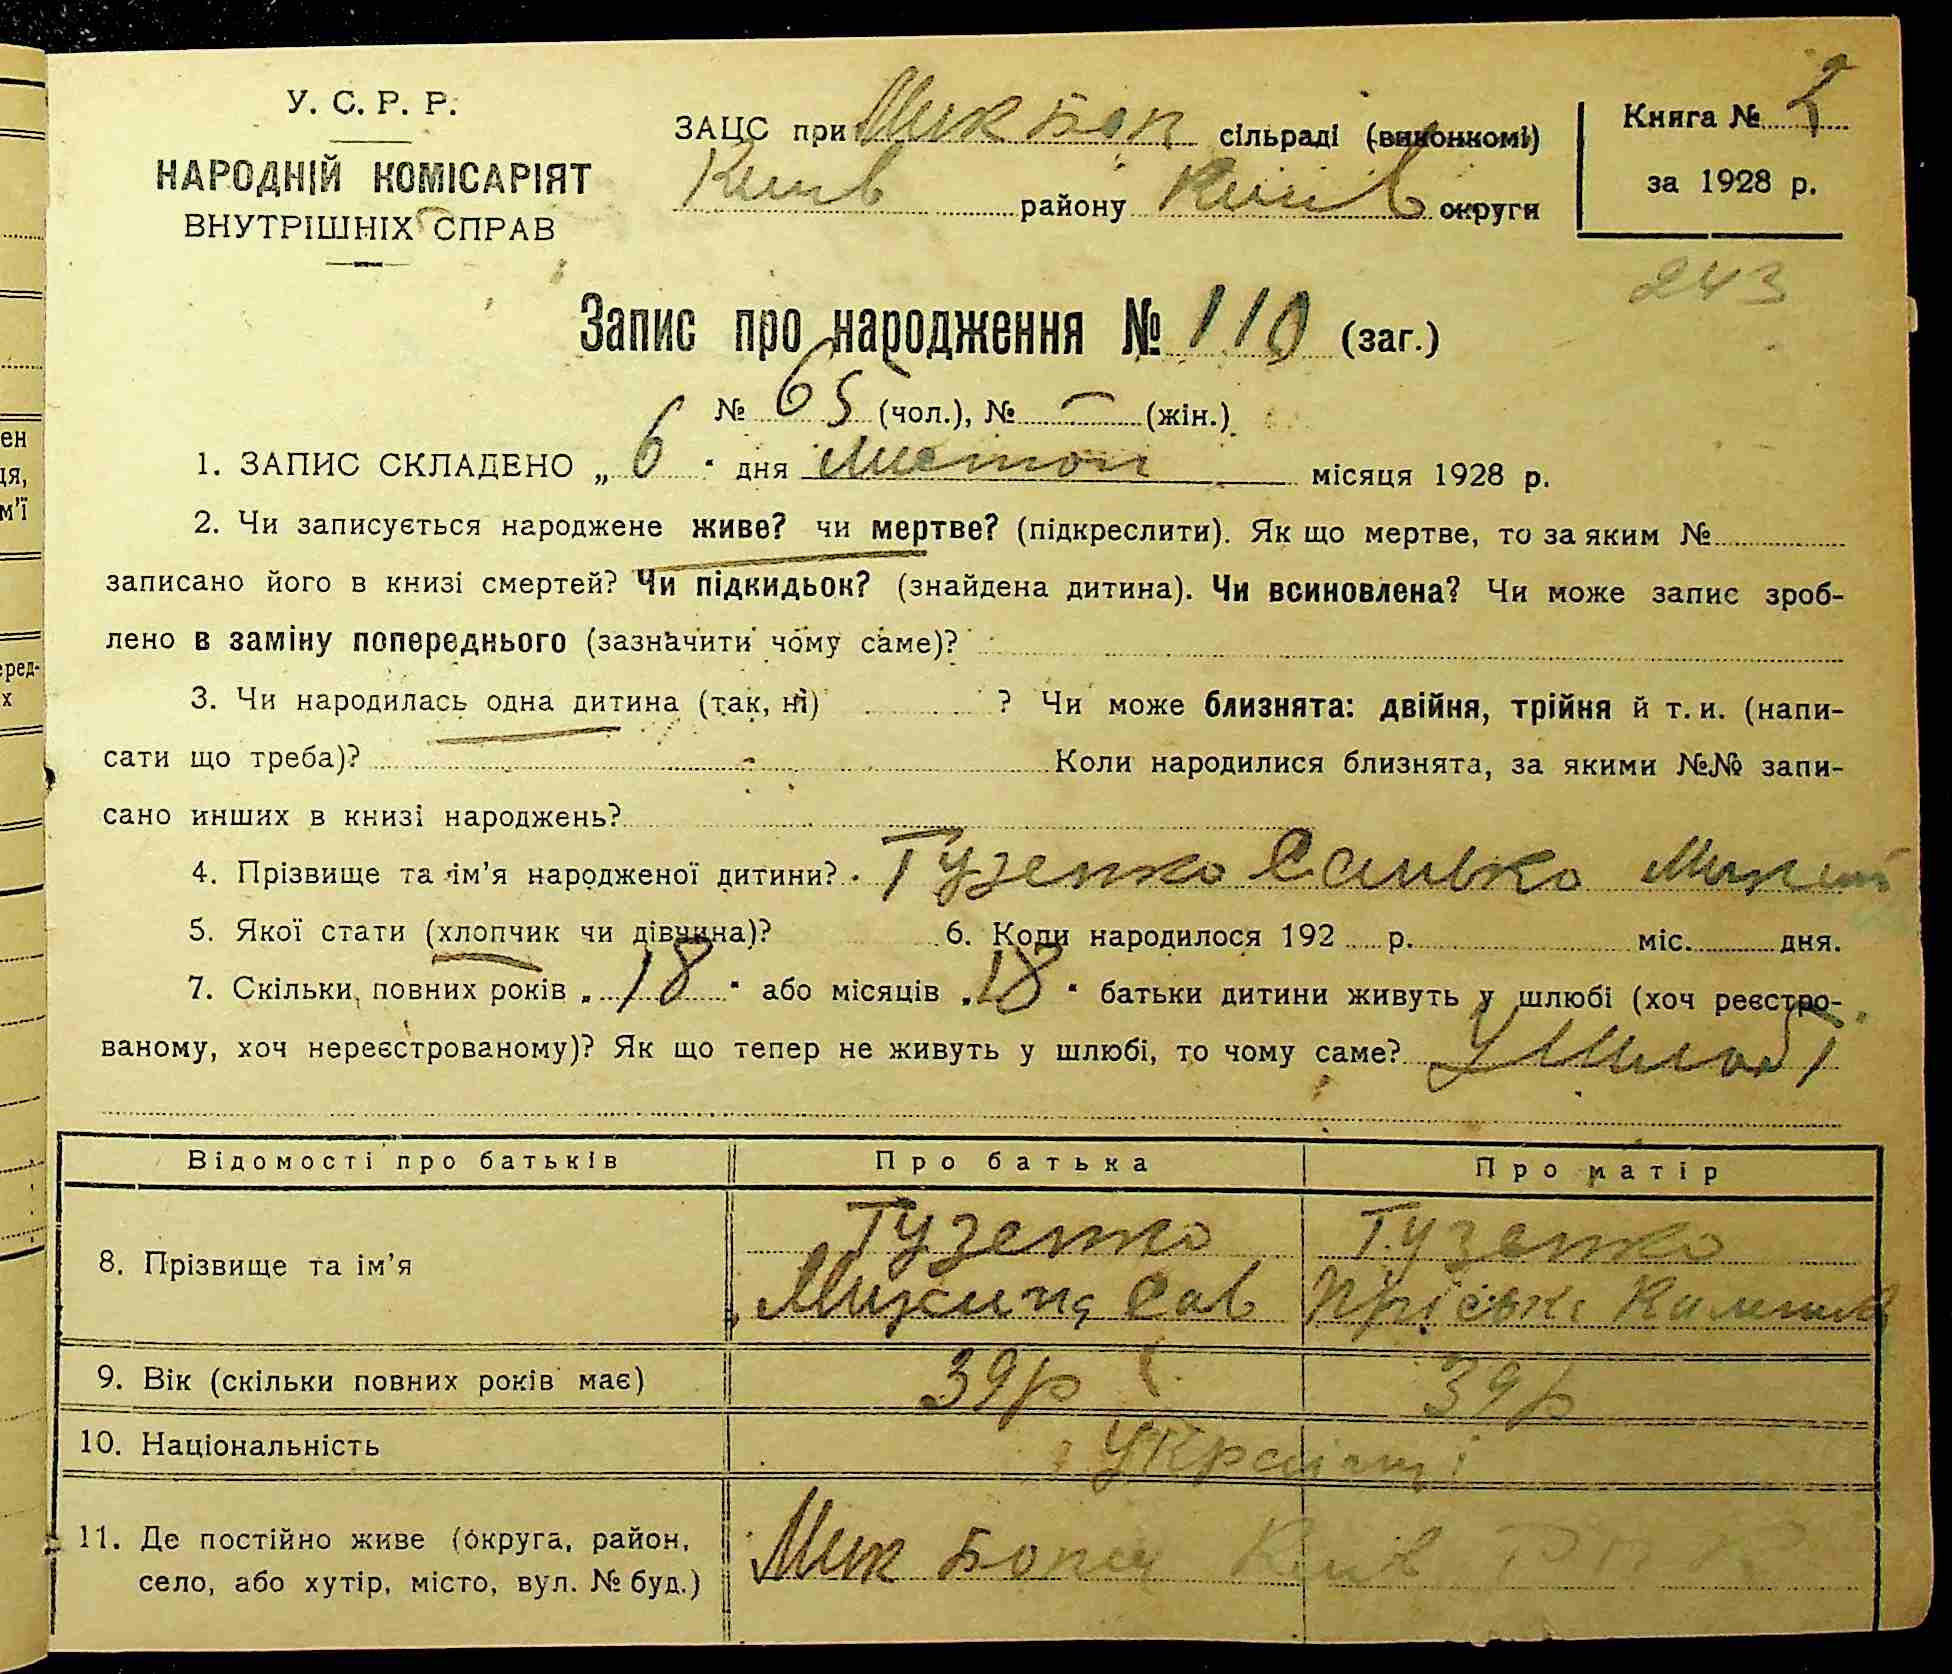 ен
ця,
м'ї
еред-
х
У. С. Р. Р.
НАРОДНІЙ КОМІСАРІЯТ
ВНУТРІШНІХ СПРАВ
ЗАЦС при Мик Бор сільраді (виконкомі)
Київ району Київ округи
Книга №
за 1928 р.
243
Запис про народження № 110 (заг.)
№ 65 (чол.), № — (жін.)
1. ЗАПИС СКЛАДЕНО „ 6 " дня Листоп місяця 1928 р.
2. Чи записується народжене живе? чи мертве? (підкреслити). Як що мертве, то за яким №
записано його в книзі смертей? Чи підкидьок? (знайдена дитина). Чи всиновлена? Чи може запис зроб-
лено в заміну попереднього (зазначити чому саме)?
3. Чи народилась одна дитина (так, ні) ? Чи може близнята: двійня, трійня й т. и. (напи-
сати що треба)? Коли народилися близнята, за якими №№ запи-
сано инших в книзі народжень?
4. Прізвище та ім'я народженої дитини? Гузенко Санько
5. Якої стати (хлопчик чи дівчина)? 6. Коли народилося 192 р. міс. дня.
7. Скільки повних років „ 18 " або місяців „ 18 " батьки дитини живуть у шлюбі (хоч реєстро-
ваному, хоч нереєстрованому)? Як що тепер не живуть у шлюбі, то чому саме? У Шлюбі
Відомості про батьків Про батька Про матір
8. Прізвище та ім'я Гузенко Гузенко
Микита Сав Пріська
9. Вік (скільки повних років має) 39 р 39 р
10. Національність Українці
11. Де постійно живе (округа, район,
село, або хутір, місто, вул. № буд.) Мик Борщ Київ